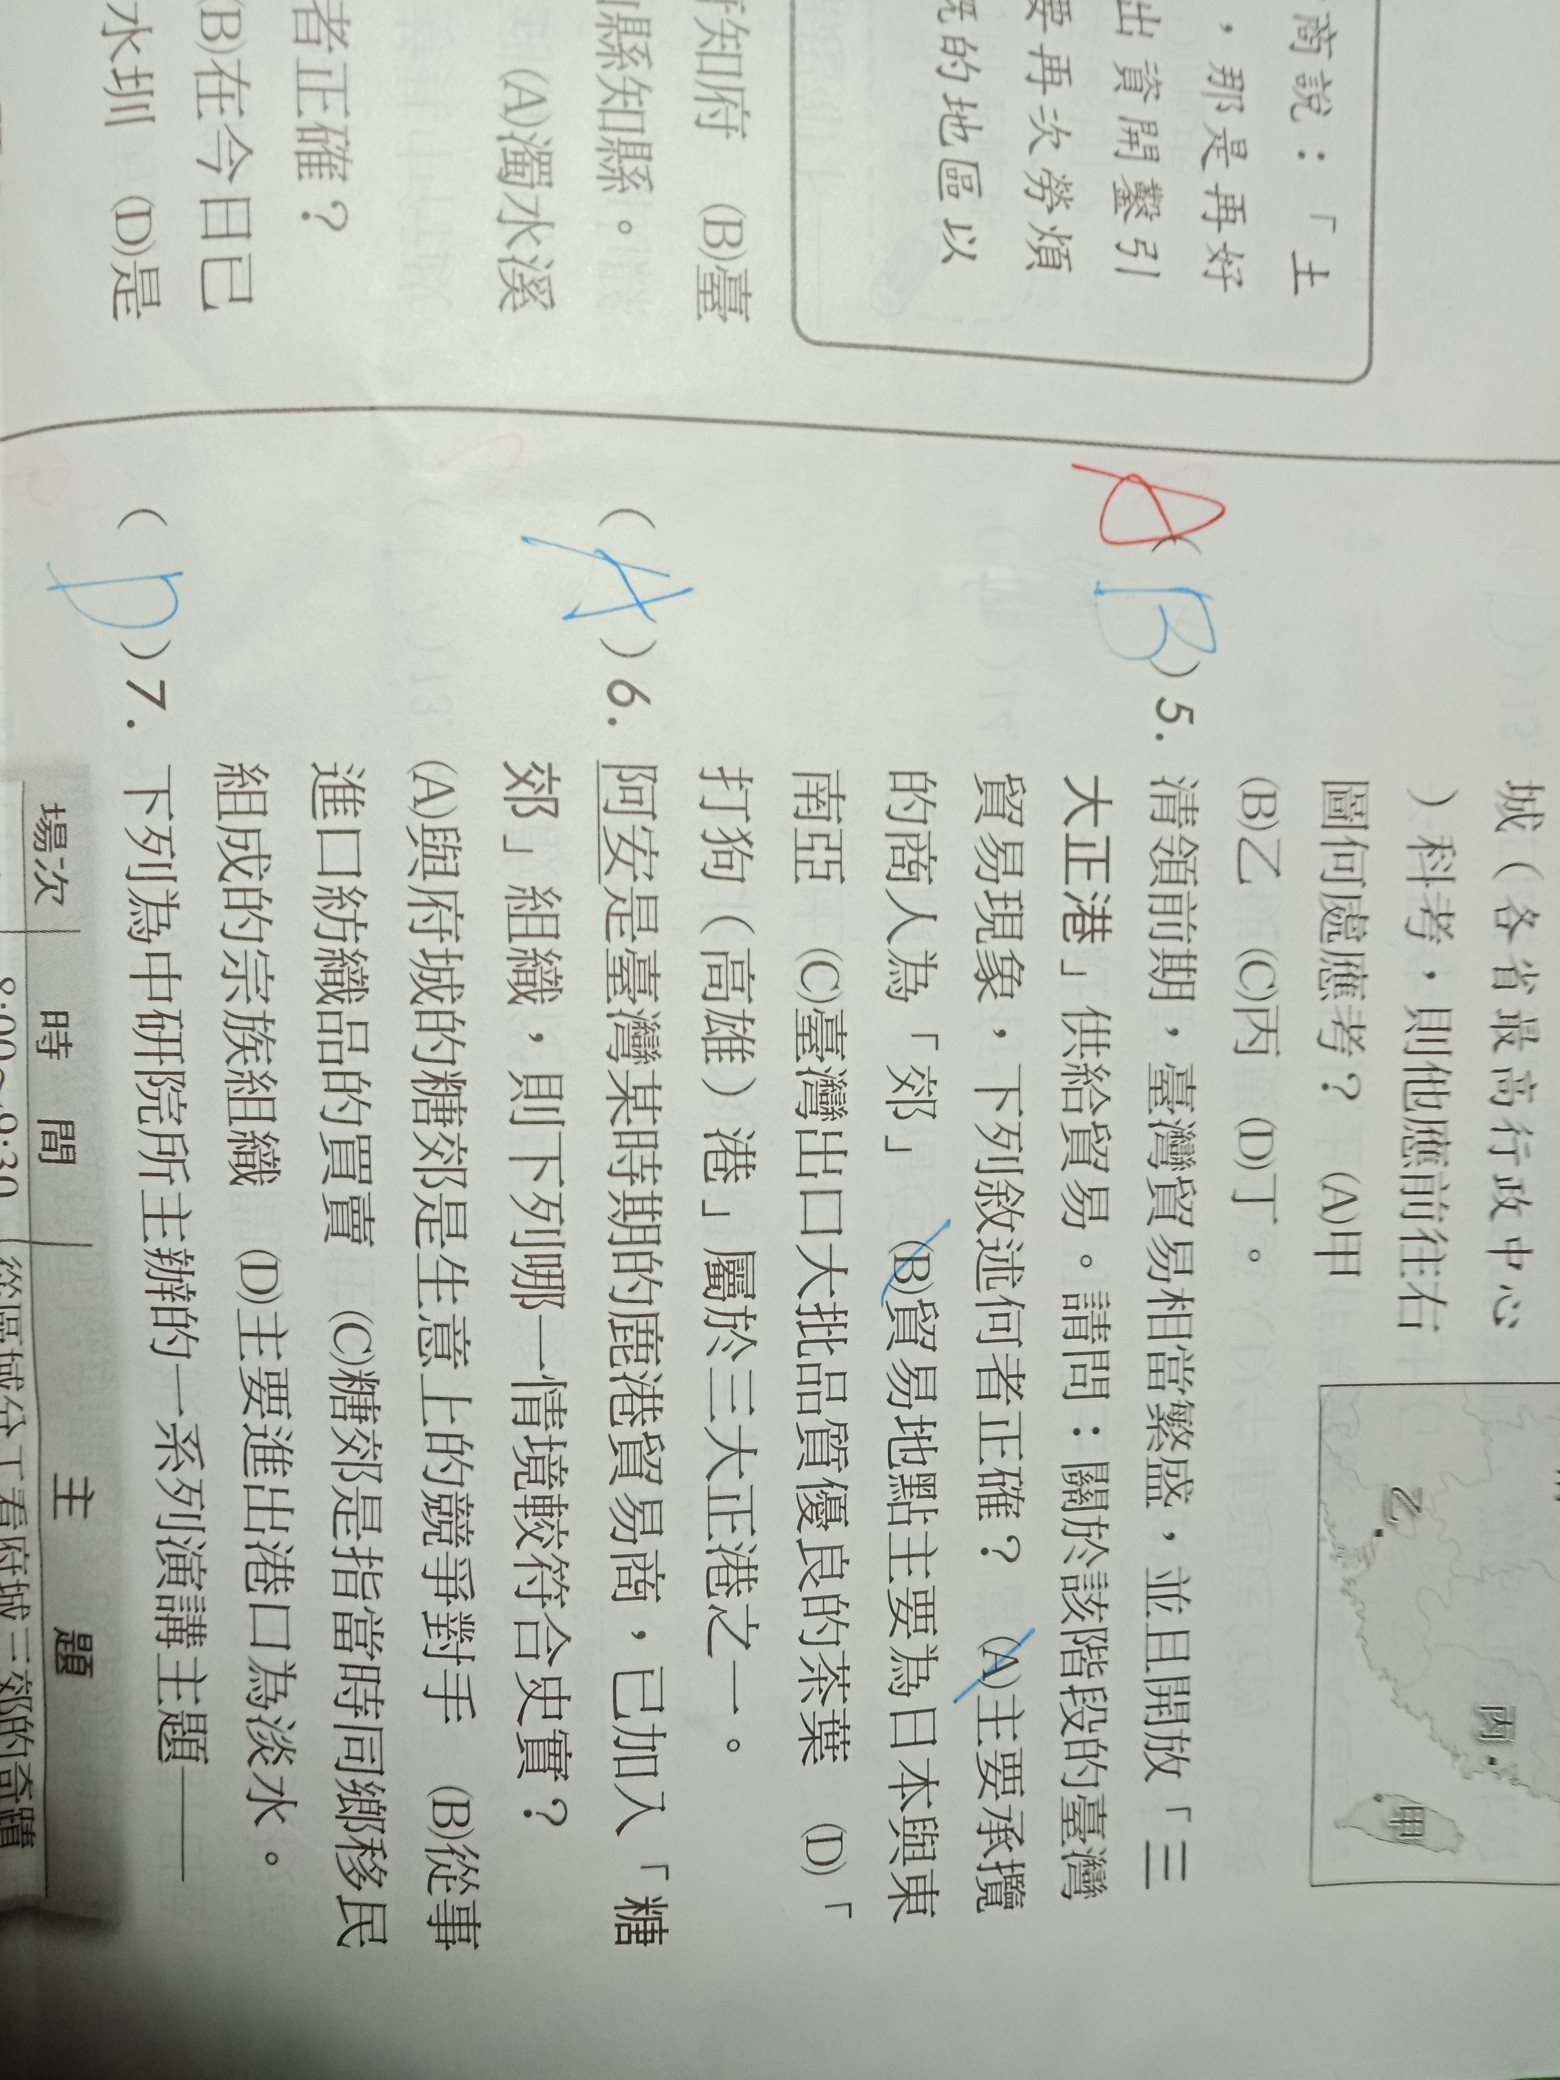 商說：「土
，那是再好
出資開鑿引
要再次勞煩
的地區以
知府 (B)臺
縣知縣。
(A)濁水溪
者正確？
(B)在今日已
水圳 (D)是
城（各省最高行政中心
）科考，則他應前往右
圖何處應考？ (A)甲
(B)乙 (C)丙 (D)丁。
乙
丙
甲
A
(B)5. 清領前期，臺灣貿易相當繁盛，並且開放「三
大正港」供給貿易。請問：關於該階段的臺灣
貿易現象，下列敘述何者正確？ (A)主要承攬
的商人為「郊」 (B)貿易地點主要為日本與東
南亞 (C)臺灣出口大批品質優良的茶葉 (D)「
打狗（高雄）港」屬於三大正港之一。
(A)6. 阿安是臺灣某時期的鹿港貿易商，已加入「糖
郊」組織，則下列哪一情境較符合史實？
(A)與府城的糖郊是生意上的競爭對手 (B)從事
進口紡織品的買賣 (C)糖郊是指當時同鄉移民
組成的宗族組織 (D)主要進出港口為淡水。
(D)7. 下列為中研院所主辦的一系列演講主題——
場次 時間 主題
8:00~9:30 從區域分工看府城三郊的奇蹟